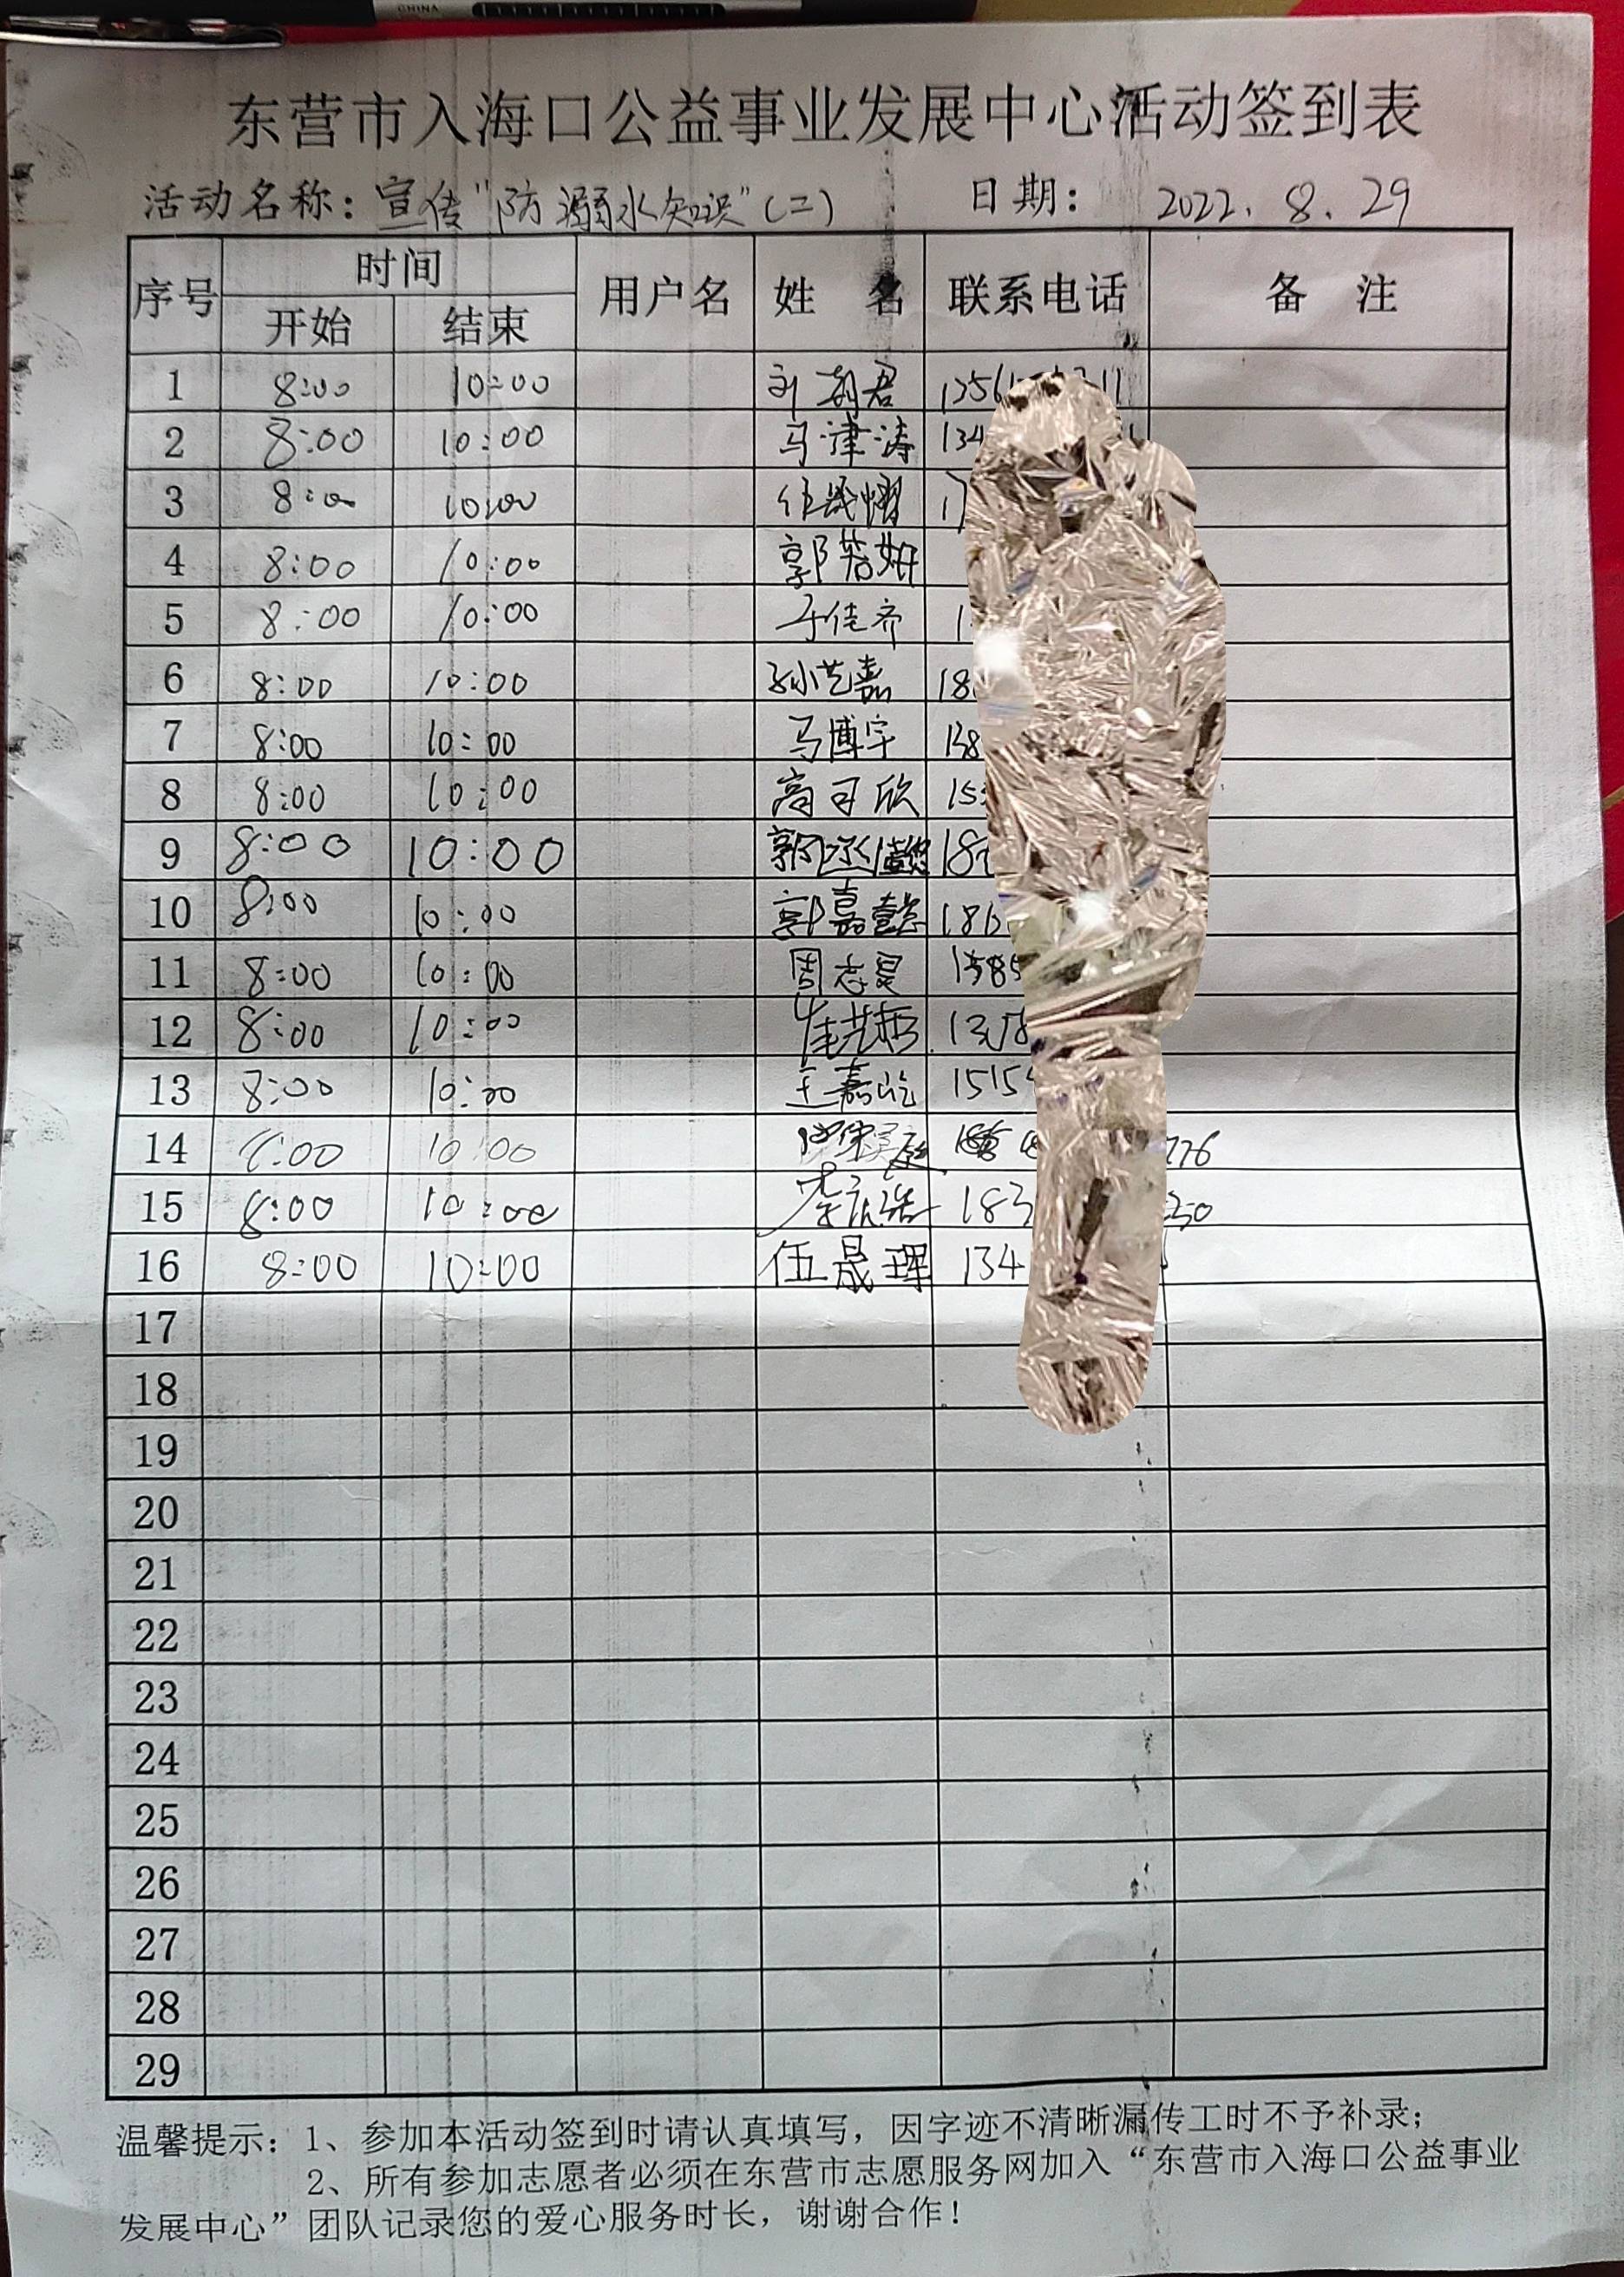 CHINA
东营市入海口公益事业发展中心活动签到表
活动名称：宣传"防溺水知识"(二) 日期： 2022.8.29
序号 时间 用户名 姓 名 联系电话 备 注
开始 结束
1 8:00 10:00 刘
2 8:00 10:00 马津涛 134
3 8:00 10:00 17
4 8:00 10:00 郭
5 8:00 10:00 于佳齐 1
6 8:00 10:00 孙艺嘉 18
7 8:00 10:00 马博宇 138
8 8:00 10:00 高可欣 15
9 8:00 10:00 郭 18
10 8:00 10:00 郭嘉懿 18
11 8:00 10:00 周志昊
12 8:00 10:00 崔艺
13 8:00 10:00 王嘉屹 1515
14 8:00 10:00 776
15 8:00 10:00 李 183
16 8:00 10:00 伍晟琿 134
17
18
19
20
21
22
23
24
25
26
27
28
29
温馨提示：1、参加本活动签到时请认真填写，因字迹不清晰漏传工时不予补录；
2、所有参加志愿者必须在东营市志愿服务网加入“东营市入海口公益事业
发展中心”团队记录您的爱心服务时长，谢谢合作！